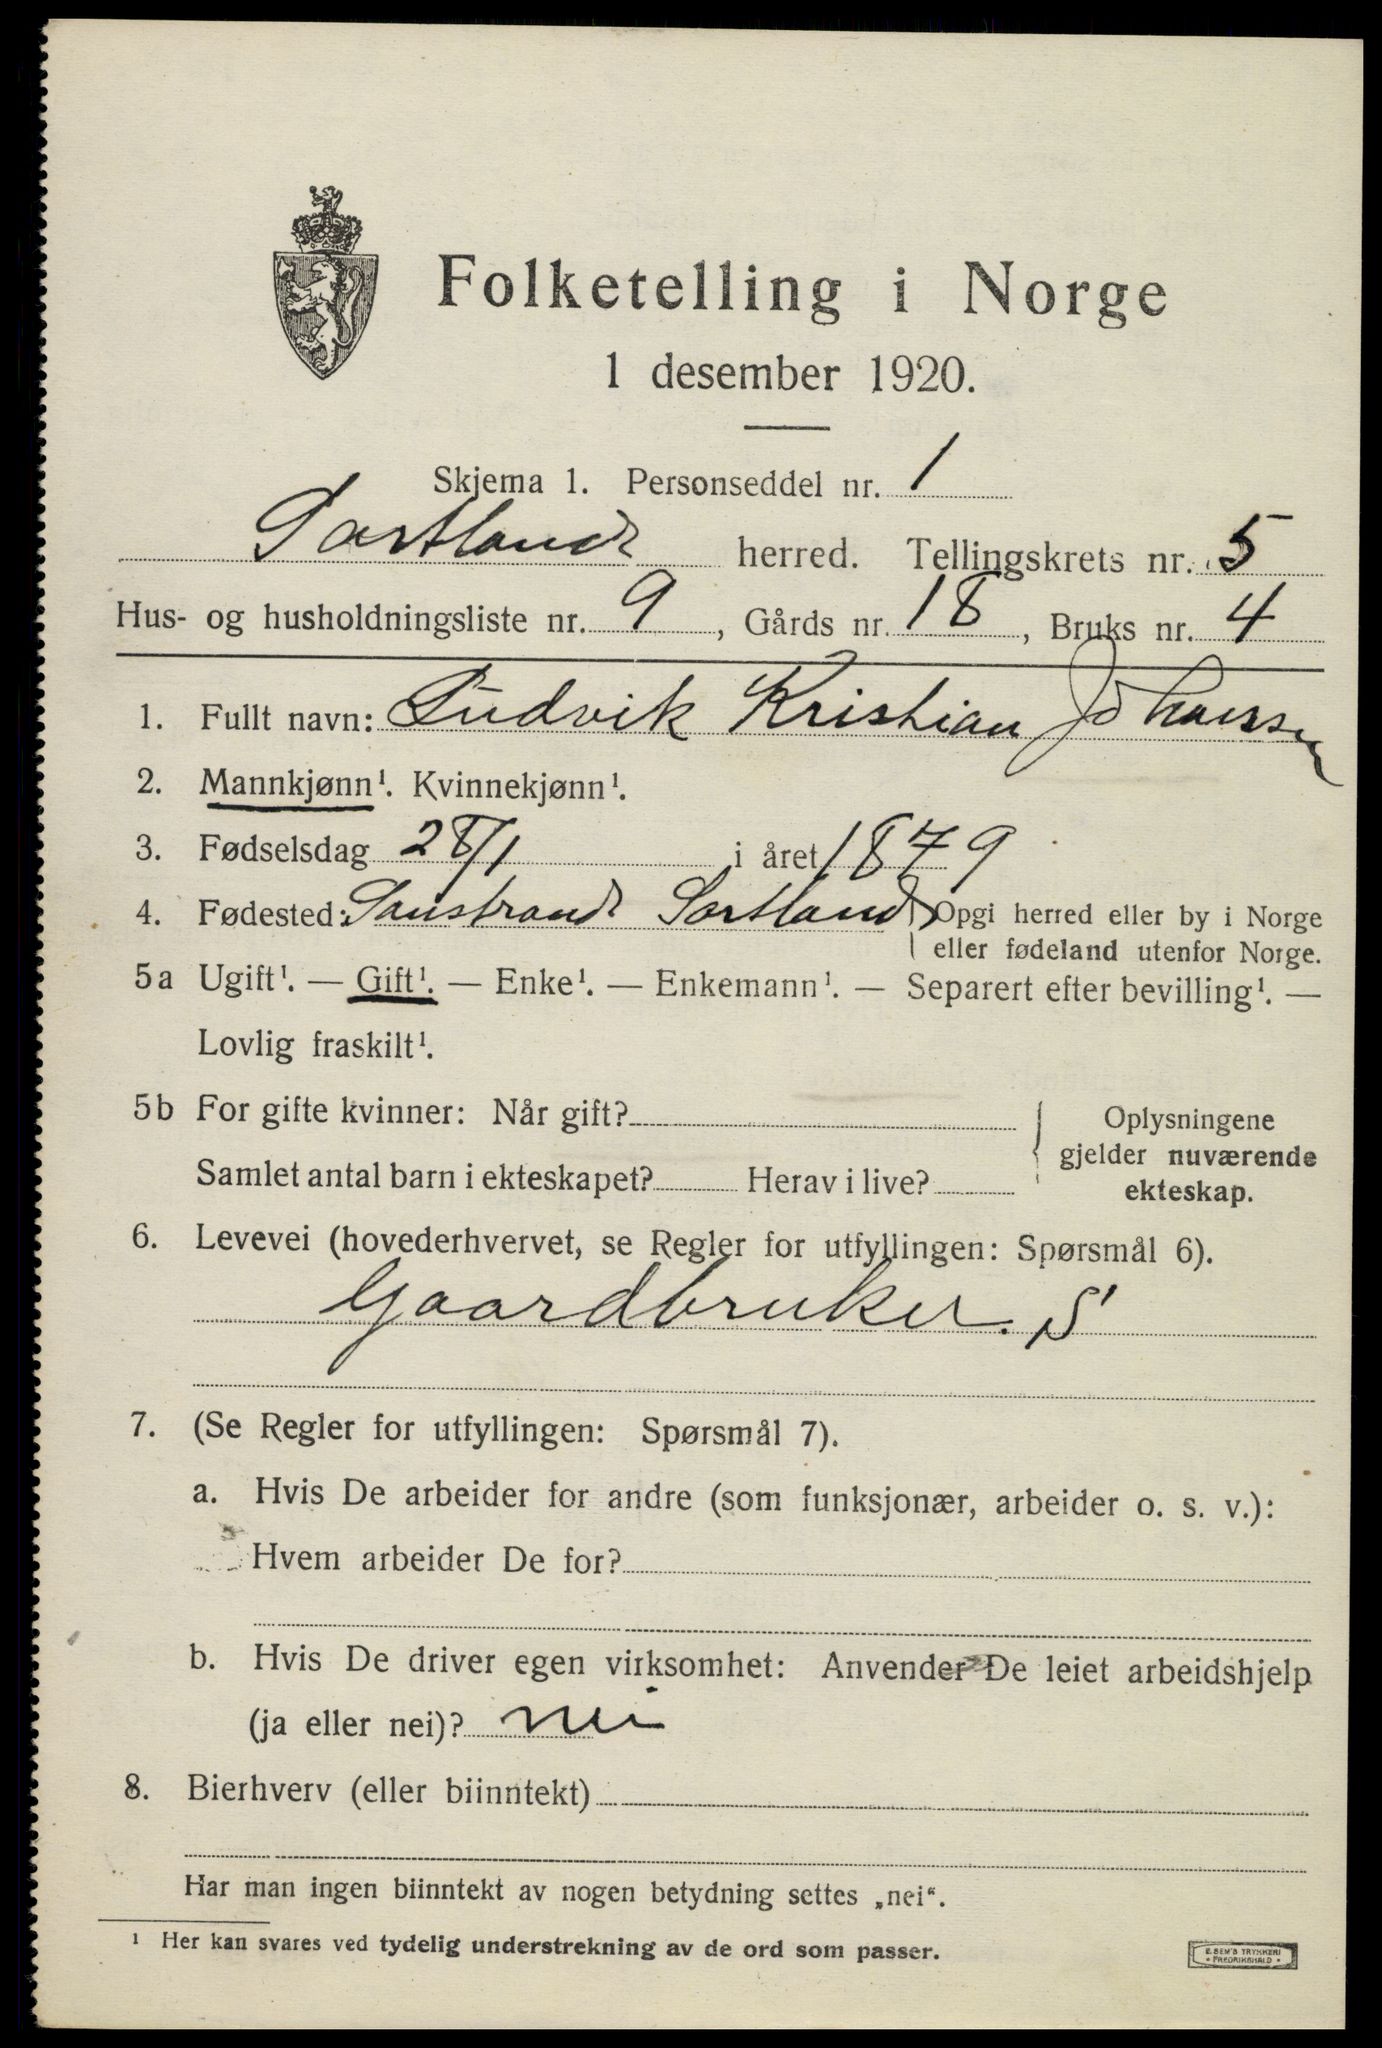 Folketelling i Norge
1 desember 1920.
Skjema 1. Personseddel nr. 1
Sortland herred. Tellingskrets nr. 5
Hus- og husholdningsliste nr. 9, Gårds nr. 18, Bruks nr. 4
1. Fullt navn: Ludvik Kristian Johansen
2. Mannkjønn¹. Kvinnekjønn¹.
3. Fødselsdag 28/1 i året 1879
4. Fødested: Sortland { Opgi herred eller by i Norge
eller fødeland utenfor Norge.
5a Ugift¹. — Gift¹. — Enke¹. — Enkemann¹. — Separert efter bevilling¹. —
Lovlig fraskilt¹.
5b For gifte kvinner: Når gift?
Samlet antal barn i ekteskapet? Herav i live?
Oplysningene
gjelder nuværende
ekteskap.
6. Levevei (hovederhvervet, se Regler for utfyllingen: Spørsmål 6).
Gaardbruker. S
7. (Se Regler for utfyllingen: Spørsmål 7).
a. Hvis De arbeider for andre (som funksjonær, arbeider o. s. v.):
Hvem arbeider De for?
b. Hvis De driver egen virksomhet: Anvender De leiet arbeidshjelp
(ja eller nei)? nei
8. Bierhverv (eller biinntekt)
Har man ingen biinntekt av nogen betydning settes „nei“.
¹ Her kan svares ved tydelig understrekning av de ord som passer.
E. SEM'S TRYKKERI
• FREDRIKSHALD •